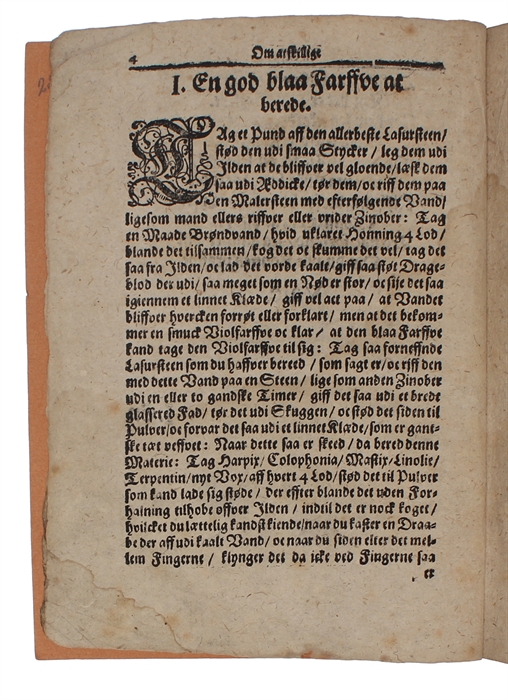 4
Om atskillige
I. En god blaa Farffve at
berede.
TAg et Pund aff den allerbeste Lasursteen/
stød den udi smaa Stycker / leg dem udi
Ilden at de bliffver vel gloende/læsk dem
saa udi Æddicke/tør dem/oc riff dem paa
en Malersteen med efterfølgende Vand/
ligesom mand ellers riffver eller vrider Zinober: Tag
en Maade Brøndvand/ hvid uklaret Honning 4 Lod/
blande det tilsammen/kog det oc skumme det vel/ tag det
saa fra Ilden/oc lad det vorde kaalt/giff saa støt Drage-
blod der udi/ saa meget som en Nød er stor/ oc sije det saa
igiennem et linnet Klæde/ giff vel act paa / at Vandet
bliffver hvercken forrøt eller forklart / men at det bekom-
mer en smuck Violfarffve oc klar/ at den blaa Farffve
kand tage den Violfarffve til sig: Tag saa forneffnde
Lasursteen som du haffver bereed / som sagt er/ oc riff den
med dette Vand paa en Steen / lige som anden Zinober
udi en eller to gandske Timer/ giff det saa udi et brede
glassered Fad/ tør det udi Skuggen/ oc stød det siden til
Pulver/oc forvar det saa udi et linnet Klæde/som er gant-
ske tæt veffvet: Naar dette saa er skeed/ da bered denne
Materie: Tag Harpix/Colophonia/Mastix/Linolie/
Terpentin/nyt Vox/aff hvert 4 Lod/stød det til Pulver
som kand lade sig støde/ der effter blande det uden For-
haining tilhobe øffver Ilden / indtil det er nock koget/
hvilcket du lættelig kandst kiende/naar du kaster en Draa-
be der aff udi kaalt Vand/ oc naar du siden elter det mel-
lem Fingerne/ klynger det da icke ved Fingerne saa
er